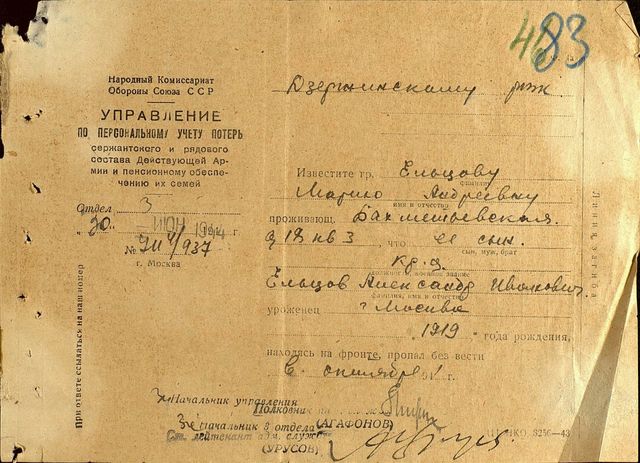 4683
Народный Комиссариат
Обороны Союза ССР
УПРАВЛЕНИЕ
ПО ПЕРСОНАЛЬНОМУ УЧЕТУ ПОТЕРЬ
сержантского и рядового
состава Действующей Ар-
мии и пенсионному обеспе-
чению их семей
Отдел 3
"30" ИЮН 1944 г
№
г. Москва
При ответе ссылаться на наш номер
Дзержинскому рвк.
Известите гр. Ельцову
фамилия
Марию Андреевну
имя и отчество
проживающ. Бахметьевская
д 18 кв 3 что ее сын.
сын, муж, брат
кр-ц
должность, военное звание
Ельцов Александр Иванович
фамилия, имя и отчество
уроженец г Москва
1919 года рождения,
находясь на фронте, пропал без вести
в 41 г.
Начальник управления
Полковник
(АГАФОНОВ)
Начальник 3 отдела
Ст. лейтенант адм. служб
(УРУСОВ)
Линия загиба